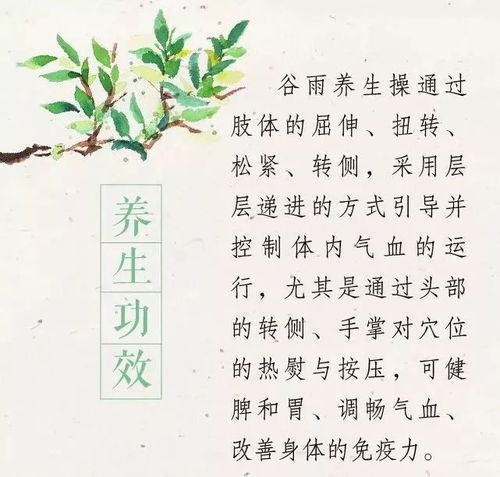 养生功效
谷雨养生操通过
肢体的屈伸、扭转、
松紧、转侧，采用层
层递进的方式引导并
控制体内气血的运
行，尤其是通过头部
的转侧、手掌对穴位
的热熨与按压，可健
脾和胃、调畅气血、
改善身体的免疫力。